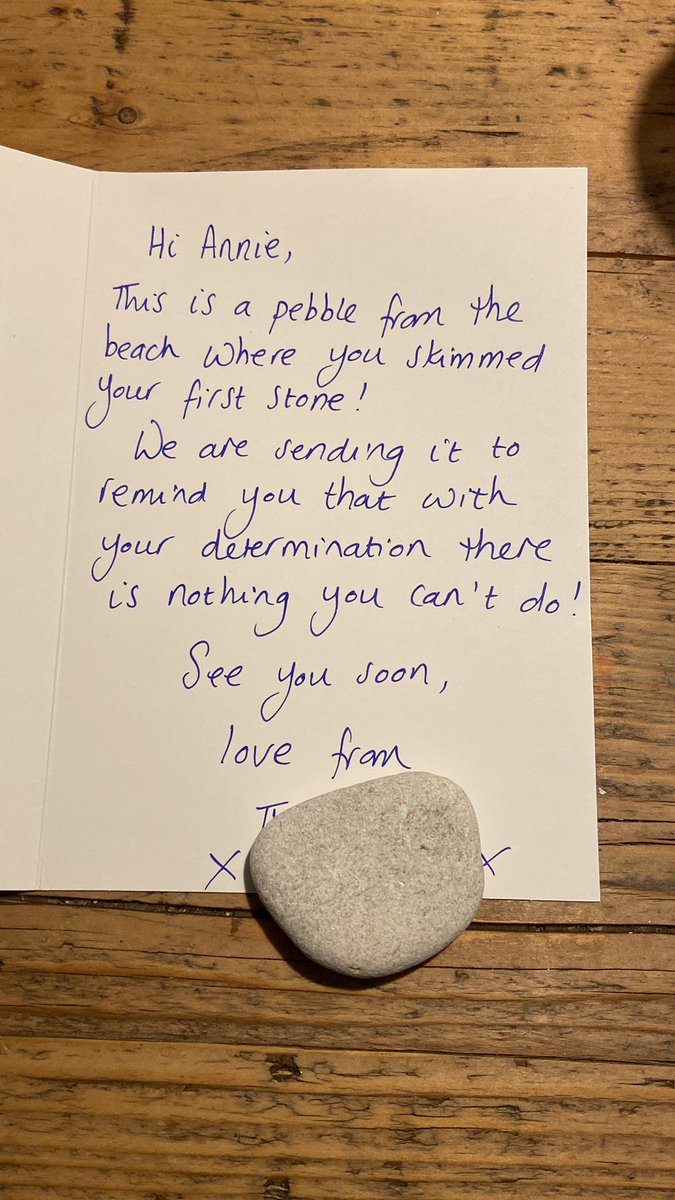 Hi Annie,
This is a pebble from the
beach where you skimmed
your first stone!
We are sending it to
remind you that with
your determination there
is nothing you can't do!
See you soon,
love from
X X